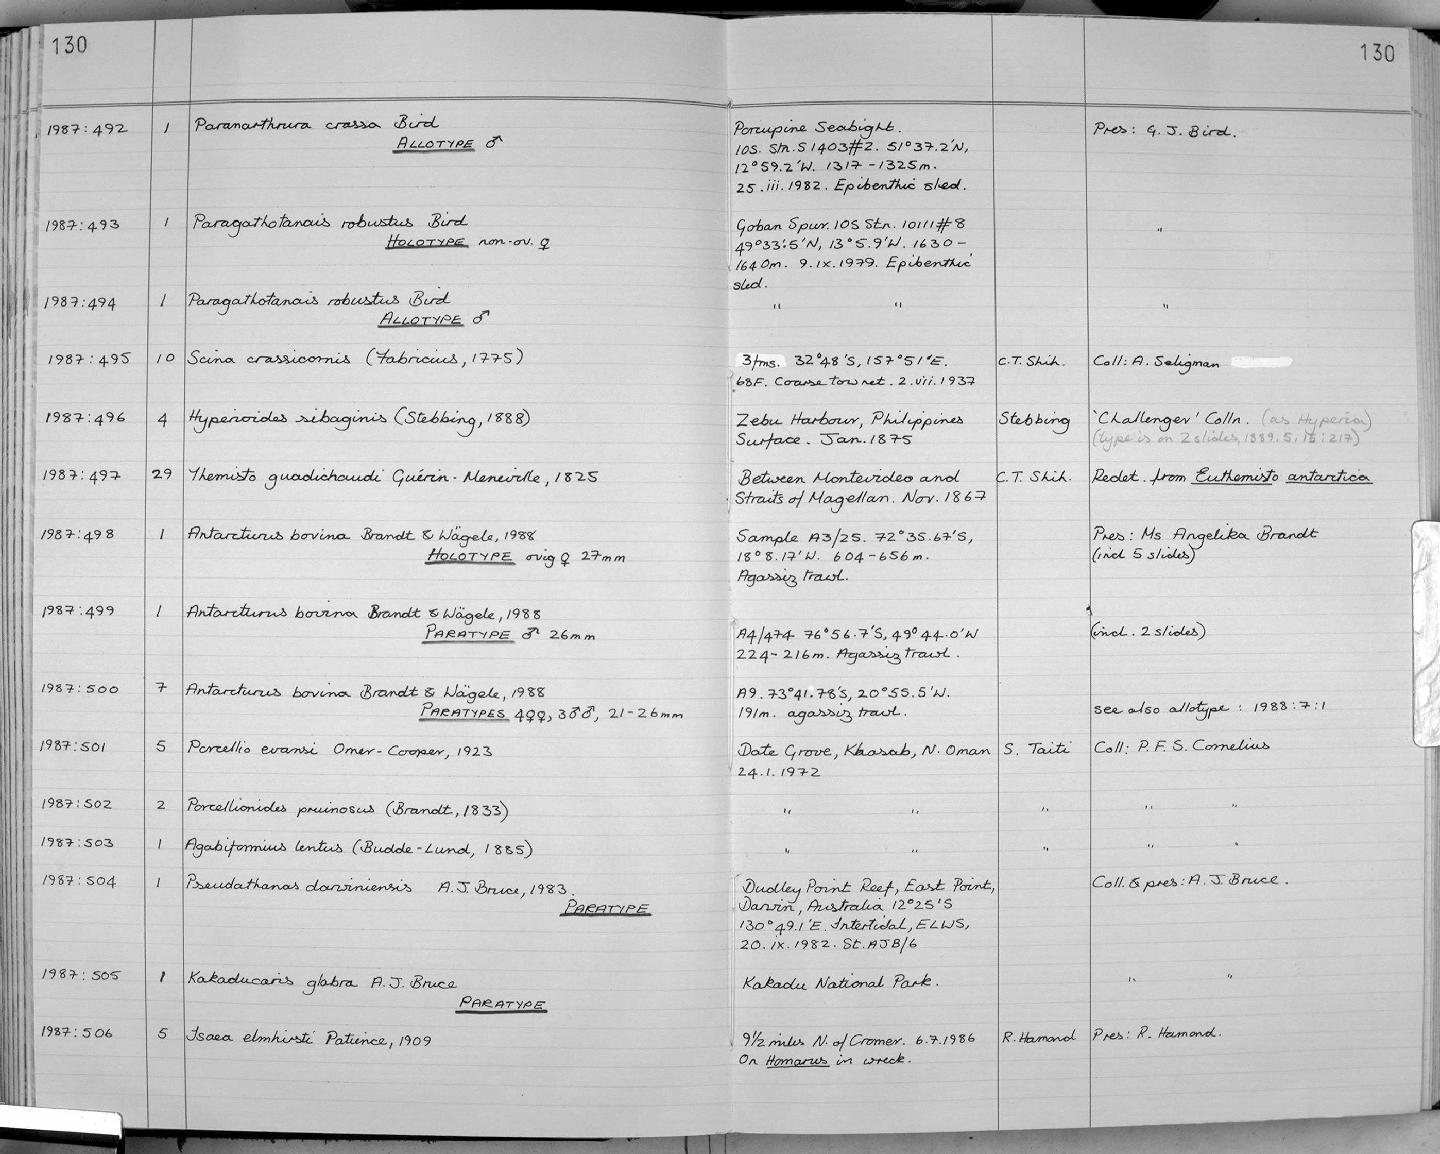 130
130
1987:492 1 Paranarthrura crassa Bird
ALLOTYPE ♂
Porcupine Seabight.
IOS. Stn. S1403#2. 51°37.2'N,
12°59.2'W. 1317-1325m.
25.iii.1982. Epibenthic sled.
Pres: G. J. Bird.
1987:493 1 Paragathotanais robustus Bird
HOLOTYPE non-ov. ♀
Goban Spur. IOS Stn. 10111#8
49°33.5'N, 13°5.9'W. 1630-
1640m. 9.ix.1979. Epibenthic
sled.
"
1987:494 1 Paragathotanais robustus Bird
ALLOTYPE ♂
" "
"
1987:495 10 Scina crassicornis (Fabricius, 1775)
3fms. 32°48'S, 157°51'E.
68F. Coarse tow net. 2.vii.1937
C.T. Shih.
Coll: A. Seligman
1987:496 4 Hyperioides sibaginis (Stebbing, 1888)
Zebu Harbour, Philippines
Surface. Jan. 1875
Stebbing
'Challenger' Colln. (as Hyperia)
(type is on 2 slides, 1889.5.15:217)
1987:497 29 Themisto guadichaudi Guérin-Meneville, 1825
Between Montevideo and
Straits of Magellan. Nov. 1867
C.T. Shih.
Redet. from Euthemisto antarctica
1987:498 1 Antarcturus bovina Brandt & Wägele, 1988
HOLOTYPE ovig ♀ 27mm
Sample A3/25. 72°35.67'S,
18°8.17'W. 604-656m.
Agassiz trawl.
Pres: Ms Angelika Brandt
(incl 5 slides)
1987:499 1 Antarcturus bovina Brandt & Wägele, 1988
PARATYPE ♂ 26mm
A4/474 76°56.7'S, 49°44.0'W
224-216m. Agassiz trawl.
(incl. 2 slides)
1987:500 7 Antarcturus bovina Brandt & Wägele, 1988
PARATYPES 4♀♀, 3♂♂, 21-26mm
A9. 73°41.78'S, 20°55.5'W.
191m. agassiz trawl.
see also allotype : 1988:7:1
1987:501 5 Porcellio evansi Omer-Cooper, 1923
Date Grove, Khasab, N. Oman
24.1.1972
S. Taiti
Coll: P. F. S. Cornelius
1987:502 2 Porcellionides pruinosus (Brandt, 1833)
" " " " "
1987:503 1 Agabiformius lentus (Budde-Lund, 1885)
" " " " "
1987:504 1 Pseudathanas darwiniensis A.J. Bruce, 1983.
PARATYPE
Dudley Point Reef, East Point,
Darwin, Australia 12°25'S
130°49.1'E. Intertidal, ELWS,
20.ix.1982. St. AJB/6
Coll. & pres: A. J. Bruce.
1987:505 1 Kakaducaris glabra A.J. Bruce
PARATYPE
Kakadu National Park.
" "
1987:506 5 Isaea elmhirsti Patience, 1909
9½ miles N. of Cromer. 6.7.1986
On Homarus in wreck.
R. Hamond
Pres: R. Hamond.